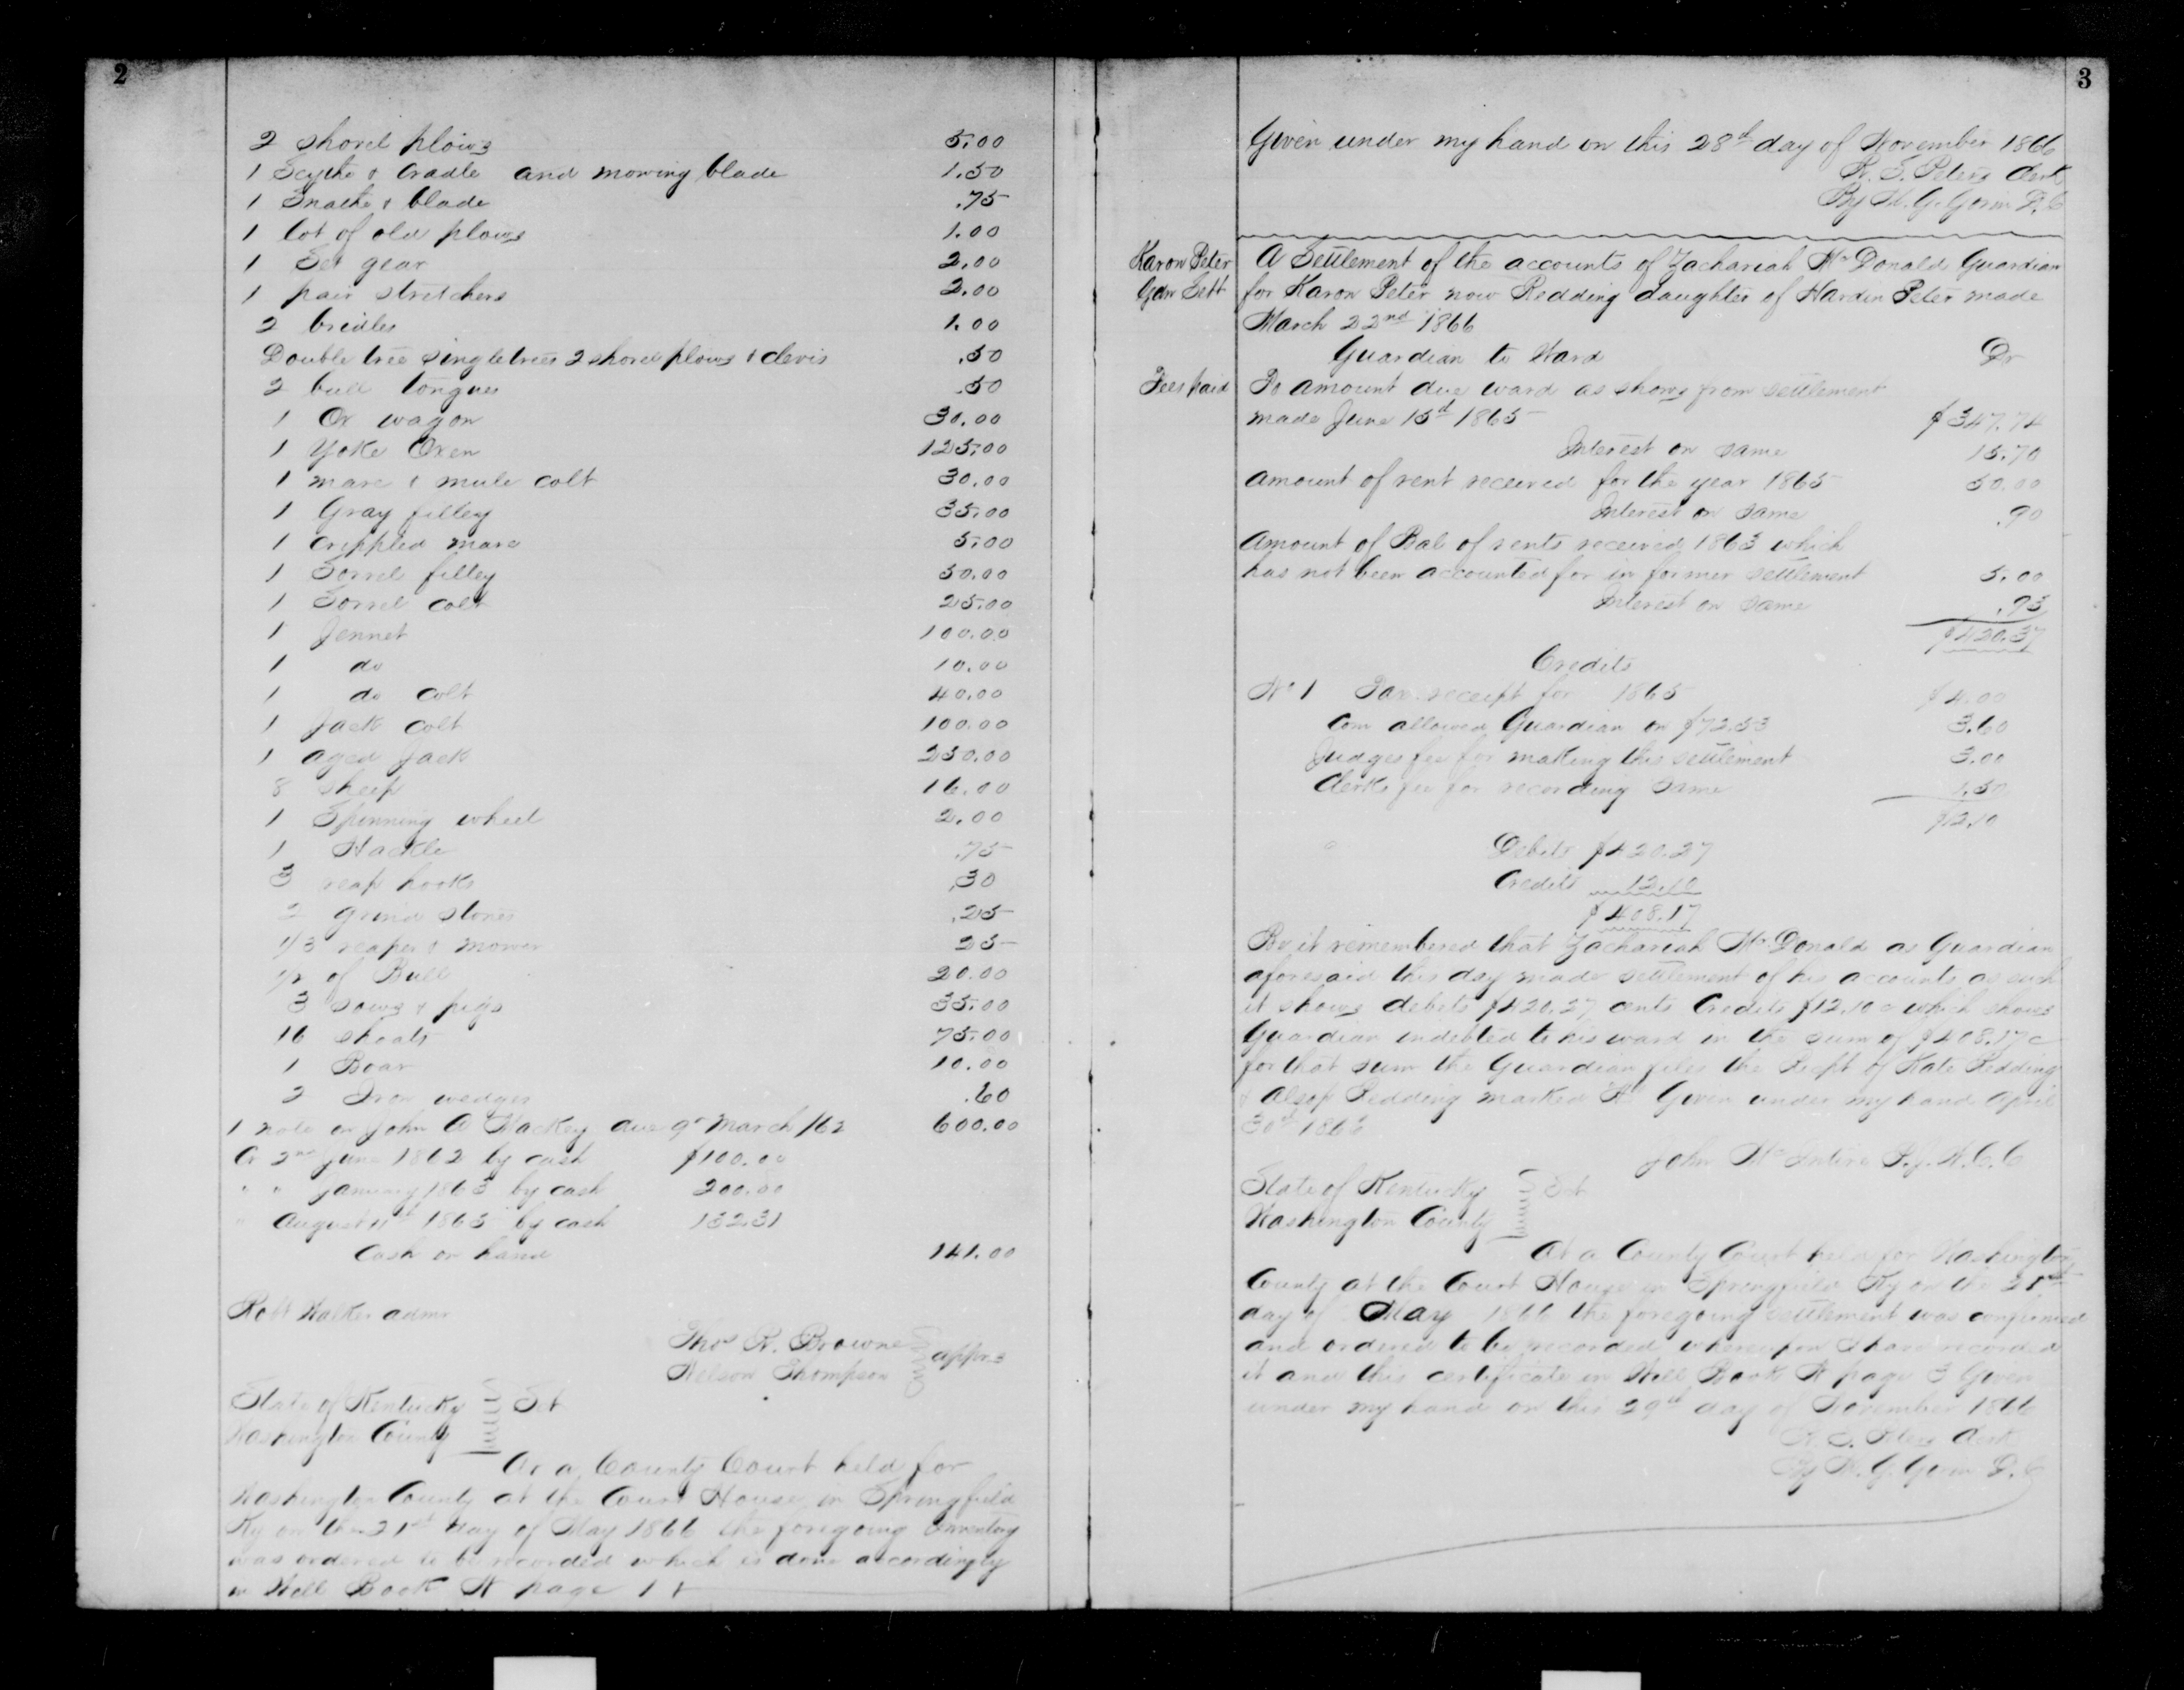 2
2 shovel plows 5.00
1 Scythe & Cradle and mowing blade 1.50
1 Snathe & blade .75
1 lot of old plows 1.00
1 Set gear 2.00
1 pair stretchers 2.00
2 bridles 1.00
Double tree singletrees 2 shovel plows & clevis .50
2 bull tongues .50
1 Ox wagon 30.00
1 Yoke Oxen 125.00
1 mare & mule colt 30.00
1 Gray filley 35.00
1 crippled mare 5.00
1 Sorrel filley 50.00
1 Sorrel colt 25.00
1 Jennet 100.00
1 do 10.00
1 do colt 40.00
1 Jack colt 100.00
1 aged Jack 250.00
8 sheep 16.00
1 Spinning wheel 2.00
1 Hackle .75
3 reap hooks .30
2 grind stones .25
1/3 reaper & mower 25
1/2 of Bull 20.00
3 sows & pigs 35.00
16 shoats 75.00
1 Boar 10.00
2 Iron wedges .60
1 note on John A Mackey due 9th March /62 600.00
Cr 2nd June 1862 by cash $100.00
" " January 1863 by cash 200.00
" August 11th 1863 by cash 132.31
Cash on hand 141.00
Robt Walker admr
Thos R. Browne
Nelson Thompson apprs
State of Kentucky
Washington County Sct
At a County Court held for
Washington County at the Court House in Springfield
Ky on the 21st day of May 1866 the foregoing Inventory
was ordered to be recorded which is done accordingly
in Will Book N page 1 +
3
Given under my hand on this 28th day of November 1866
R. S. Peters Clerk
By W. G. Gorin D.C
Karon Peter
Gdn Sett
A Settlement of the accounts of Zachariah McDonald Guardian
for Karon Peter now Redding daughter of Hardin Peter made
March 22nd 1866
Guardian to Ward Dr
Fees paid
To amount due ward as shows from settlement
made June 15th 1865 $347.74
Interest on same 15.70
Amount of rent received for the year 1865 50.00
Interest on same .90
Amount of Bal of rents received 1863 which
has not been accounted for in former settlement 5.00
Interest on same .93
$420.37
Credits
No 1 Tax receipt for 1865 $4.00
Com allowed Guardian on $72.53 3.60
Judges fee for making this settlement 3.00
Clerks fee for recording same 1.50
$12.10
Debits $420.27
Credits 12.10
$408.17
Be it remembered that Zachariah McDonald as Guardian
aforesaid this day made settlement of his accounts as such
it shows debits $420.27 cents Credits $12.10c which shows
Guardian indebted to his ward in the sum of $408.17c
for that sum the Guardian files the Recpt of Kate Redding
& Alsop Redding marked A Given under my hand April
30th 1866
John McIntire P.J.W.C.C
State of Kentucky
Washington County Sct
At a County Court held for Washington
County at the Court House in Springfield Ky on the 21st
day of May 1866 the foregoing settlement was confirmed
and ordered to be recorded whereupon I have recorded
it and this certificate in Will Book N page 3 Given
under my hand on this 29th day of November 1866
R. S. Peters Clerk
By W. G. Gorin D.C